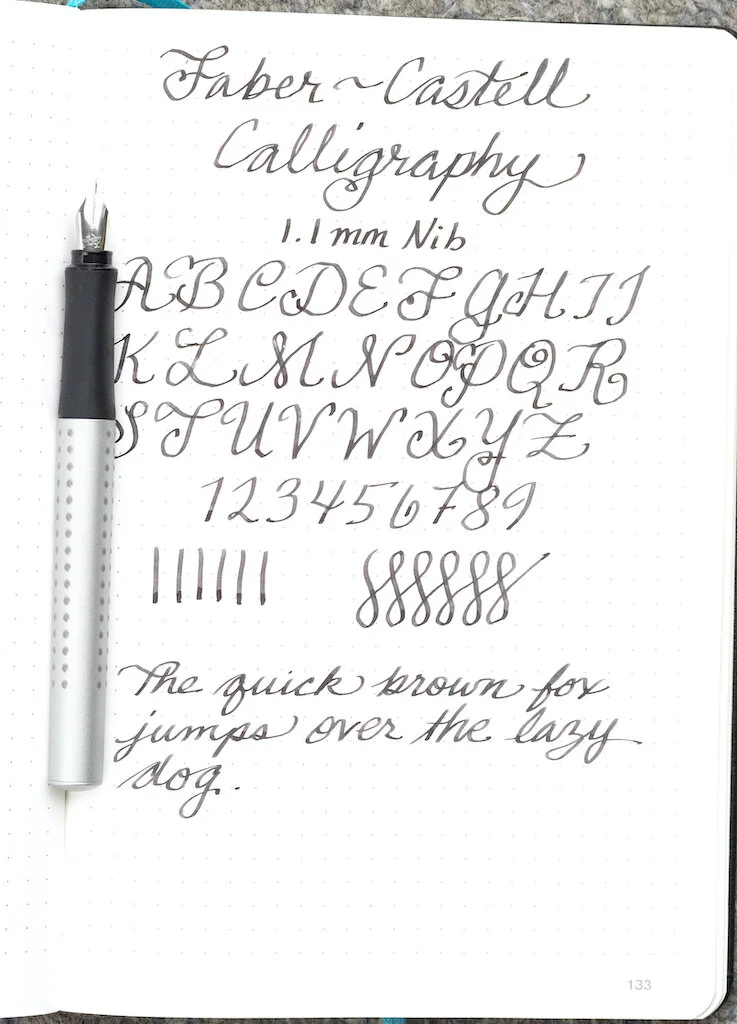 Faber~Castell
Calligraphy
1.1mm Nib
A B C D E F G H I J
K L M N O P Q R
S T U V W X Y Z
1 2 3 4 5 6 7 8 9
The quick brown fox
jumps over the lazy
dog.
133